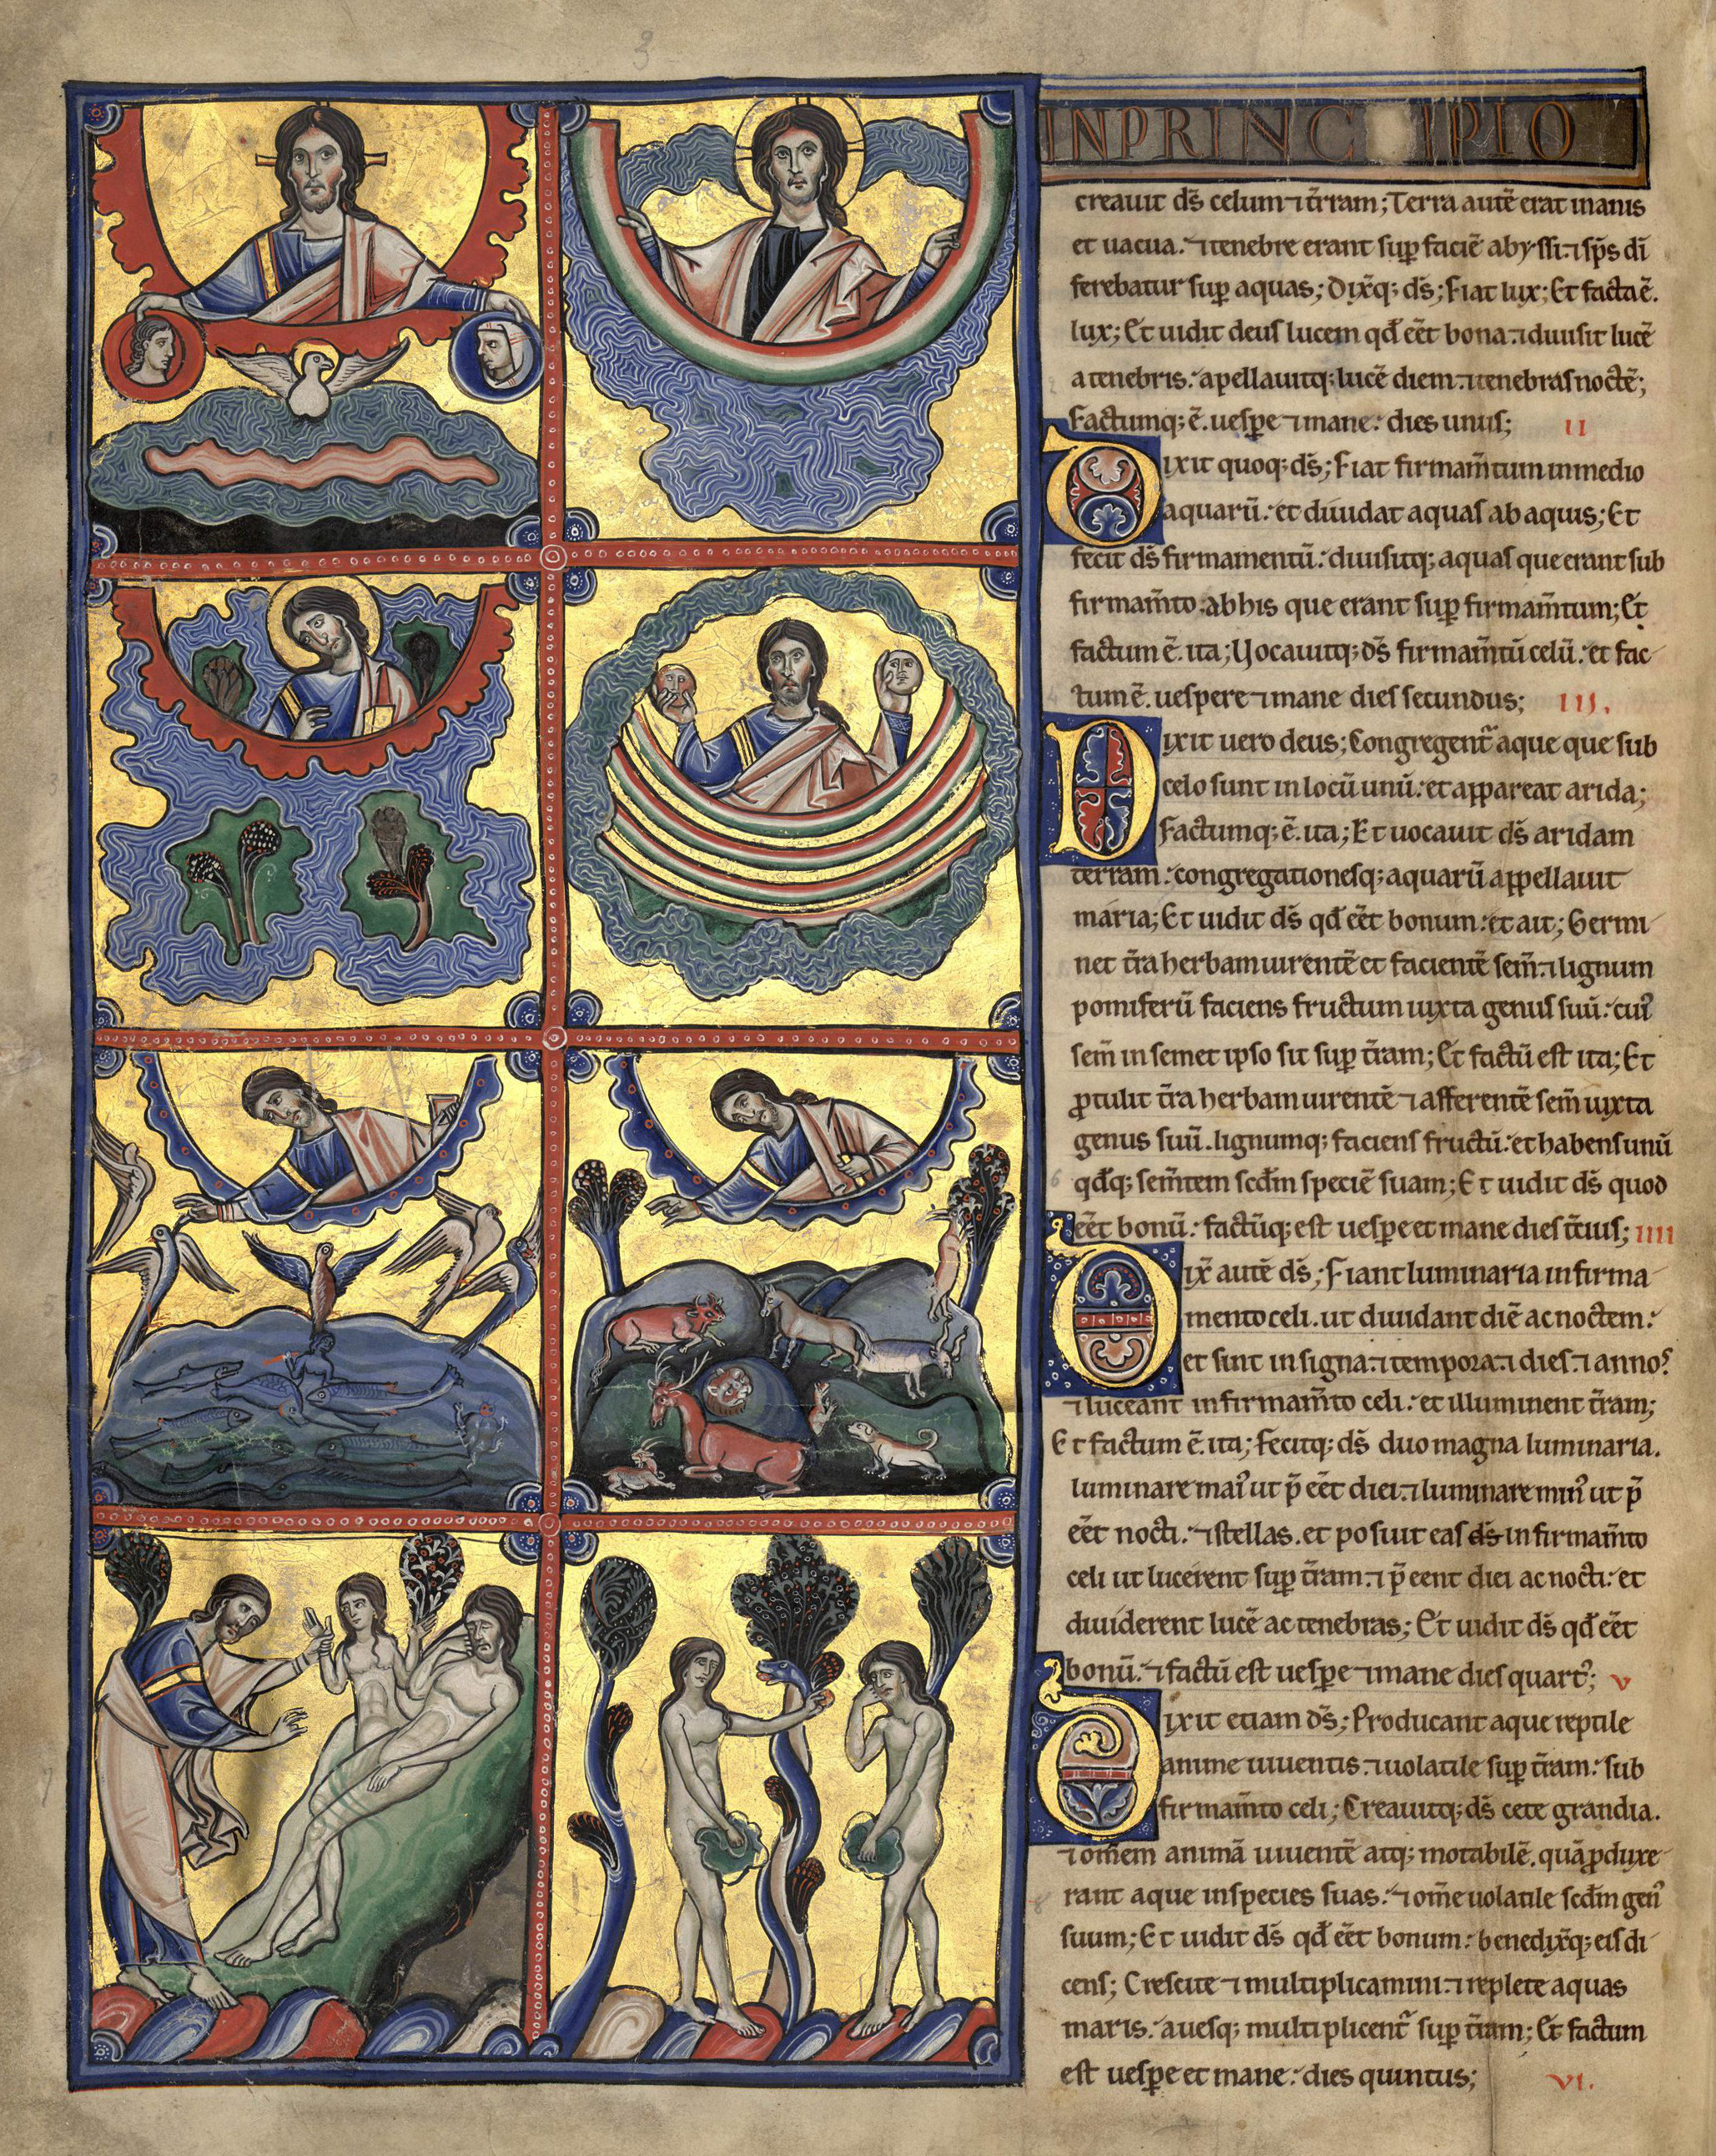 INPRINC IPIO
creauit ds̄ celum ⁊ t̄rram; Terra autē erat inanis
et uacua. ⁊ tenebre erant suꝑ faciē abyssi. ⁊ sp̄s dī
ferebatur suꝑ aquas; Dixꝫ; ds̄; Fiat lux; Et facta ē.
lux; Et uidit deus lucem qđ eēt bona. ⁊ diuisit lucē
a tenebris. apellauitq; lucē diem. ⁊ tenebras noctē;
Factumq; ē. uesꝑe ⁊ mane. dies unus; II
Dixit quoq; ds̄; Fiat firmam̄tum in medio
aquarū. et diuidat aquas ab aquis; Et
fecit ds̄ firmamentū. diuisitq; aquas que erant sub
firmam̄to. ab his que erant suꝑ firmam̄tum; Et
factum ē. ita; Vocauitq; ds̄ firmam̄tū celū. et fac
tum ē. uespere ⁊ mane dies secundus; III.
Dixit uero deus; Congregent̄ aque que sub
celo sunt in locū unū. et appareat arida;
Factumq; ē. ita; Et uocauit ds̄ aridam
terram. congregationesq; aquarū appellauit
maria; Et uidit ds̄ qđ eēt bonum. et ait; Germi
net t̄ra herbam uirentē et facientē sem̄. ⁊ lignum
pomiferū faciens fructum iuxta genus suū. cui᾽
sem̄ in semet ipso sit suꝑ t̄ram; Et factū est ita; Et
ꝓtulit t̄ra herbam uirentē ⁊ afferentē sem̄ iuxta
genus suū. lignumq; faciens fructū. et habens unū
qđq; sem̄tem scđm speciē suam; Et uidit ds̄ quod
eēt bonū. factūq; est uesꝑe et mane dies t̄cius; IIII
Dix̄ autē ds̄; Fiant luminaria in firma
mento celi. ut diuidant diē ac noctem.
et sint in signa. ⁊ tempora. ⁊ dies. ⁊ annos
⁊ luceant in firmam̄to celi. et illuminent t̄ram;
Et factum ē. ita; Fecitq; ds̄ duo magna luminaria.
luminare mai᾽ ut p̄ eēt diei. ⁊ luminare min᾽ ut p̄
eēt nocti. ⁊ stellas. et posuit eas ds̄ in firmam̄to
celi ut lucerent suꝑ t̄ram. ⁊ p̄ eent diei ac nocti. et
diuiderent lucē ac tenebras; Et uidit ds̄ qđ eēt
bonū. ⁊ factū est uesꝑe ⁊ mane dies quart᾽; V
Dixit etiam ds̄; Producant aque reptile
anime uiuentis. ⁊ uolatile suꝑ t̄ram. sub
firmam̄to celi; Creauitq; ds̄ cete grandia.
⁊ om̄em animā uiuentē atq; motabilē. quā ꝓduxe
rant aque in species suas. ⁊ om̄e uolatile scđm gen᾽
suum; Et uidit ds̄ qđ eēt bonum. benedix̄q; eis di
cens; Crescite ⁊ multiplicamini. ⁊ replete aquas
maris. auesq; multiplicent̄ suꝑ t̄ram; Et factum
est uesꝑe et mane. dies quintus; VI.